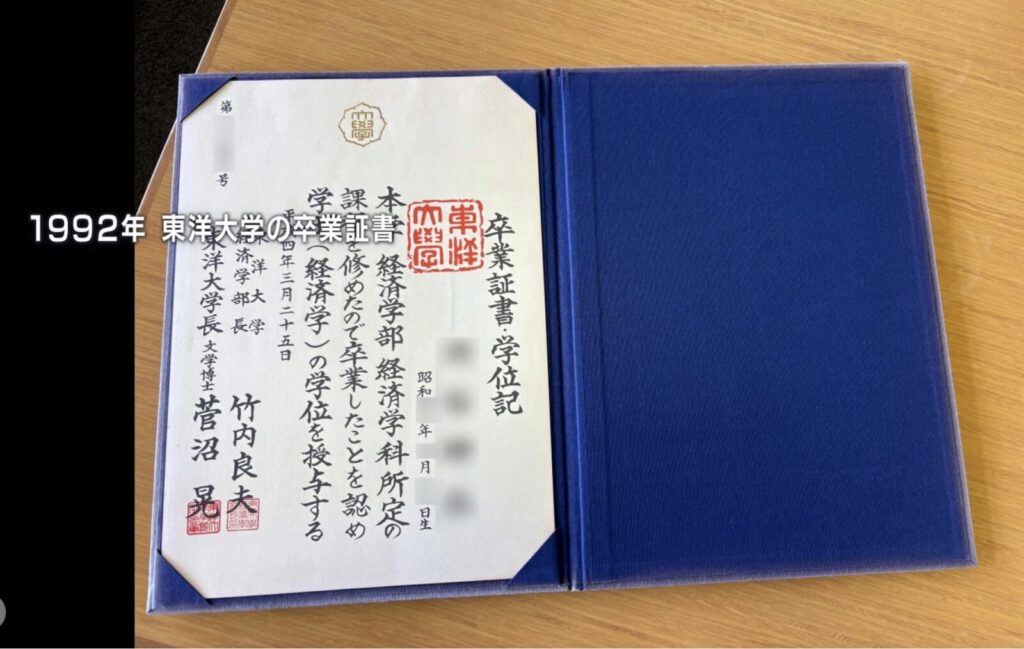 1992年 東洋大学の卒業証書
卒業証書・学位記
東洋大學
昭和 年 月 日生
本学 経済学部 経済学科所定の
課程を修めたので卒業したことを認め
学士(経済学)の学位を授与する
平成四年三月二十五日
東洋大学
経済学部長 竹内良夫
東洋大学長 文学博士 菅沼 晃
第 号